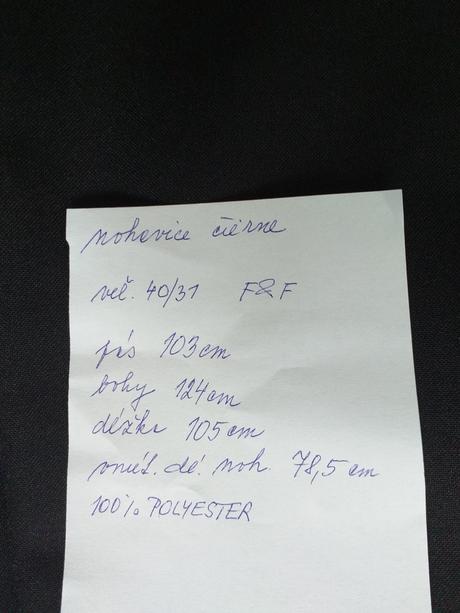 nohavice čierne
veľ. 40/31 F&F
pás 103cm
boky 124cm
dĺžka 105cm
vnút. dĺ. noh. 78,5 cm
100% POLYESTER